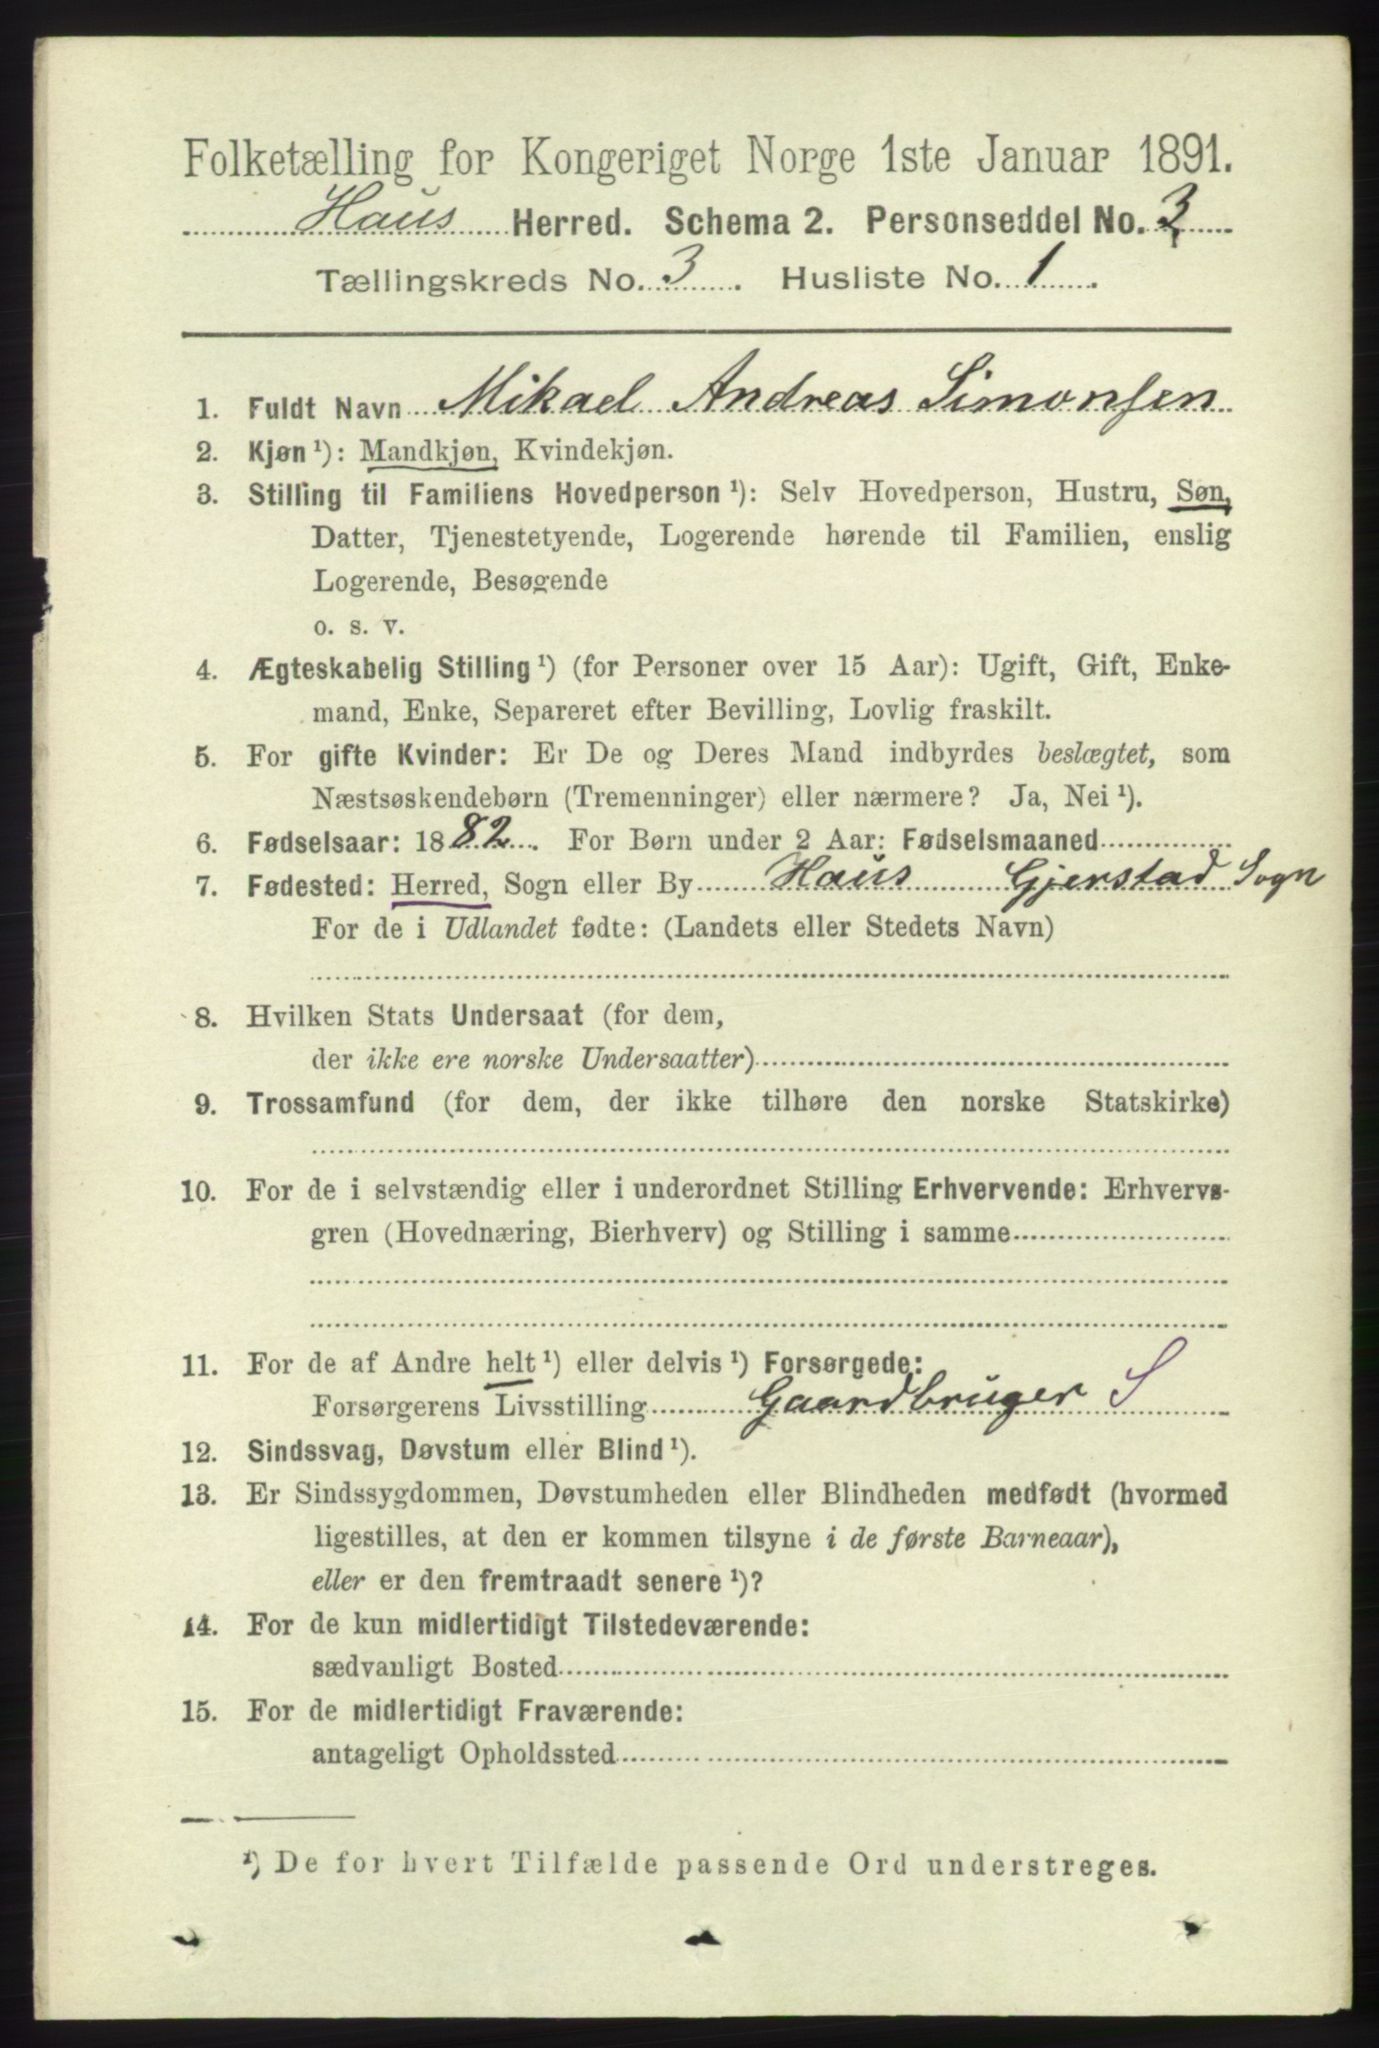 Folketælling for Kongeriget Norge 1ste Januar 1891.
Haus Herred. Schema 2. Personseddel No. 3
Tællingskreds No. 3. Husliste No. 1.
1. Fuldt Navn Mikael Andreas Simonsen
2. Kjøn¹): Mandkjøn, Kvindekjøn.
3. Stilling til Familiens Hovedperson¹): Selv Hovedperson, Hustru, Søn,
Datter, Tjenestetyende, Logerende hørende til Familien, enslig
Logerende, Besøgende
o. s. v.
4. Ægteskabelig Stilling¹) (for Personer over 15 Aar): Ugift, Gift, Enke-
mand, Enke, Separeret efter Bevilling, Lovlig fraskilt.
5. For gifte Kvinder: Er De og Deres Mand indbyrdes beslægtet, som
Næstsøskendebørn (Tremenninger) eller nærmere? Ja, Nei¹).
6. Fødselsaar: 1882. For Børn under 2 Aar: Fødselsmaaned
7. Fødested: Herred, Sogn eller By Haus Gjerstad Sogn
For de i Udlandet fødte: (Landets eller Stedets Navn)
8. Hvilken Stats Undersaat (for dem,
der ikke ere norske Undersaatter)
9. Trossamfund (for dem, der ikke tilhøre den norske Statskirke)
10. For de i selvstændig eller i underordnet Stilling Erhvervende: Erhvervs-
gren (Hovednæring, Bierhverv) og Stilling i samme
11. For de af Andre helt¹) eller delvis¹) Forsørgede:
Forsørgerens Livsstilling Gaardbruger S
12. Sindssvag, Døvstum eller Blind¹).
13. Er Sindssygdommen, Døvstumheden eller Blindheden medfødt (hvormed
ligestilles, at den er kommen tilsyne i de første Barneaar),
eller er den fremtraadt senere¹)?
14. For de kun midlertidigt Tilstedeværende:
sædvanligt Bosted
15. For de midlertidigt Fraværende:
antageligt Opholdssted
¹) De for hvert Tilfælde passende Ord understreges.